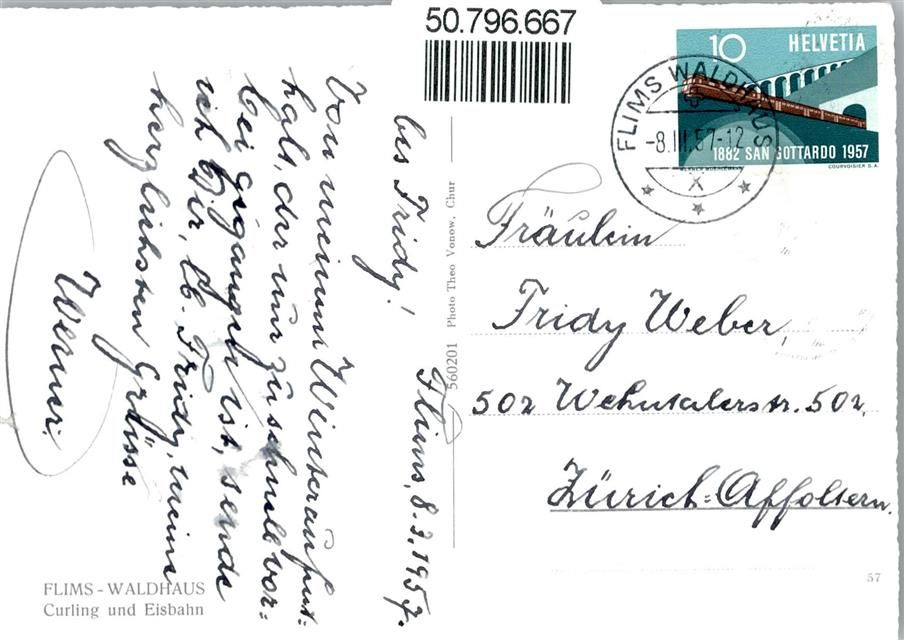 50.796.667
10 HELVETIA
1882 SAN GOTTARDO 1957
COURVOISIER S.A.
FLIMS WALDHAUS
-8.III.57-12
X
Flims, 8.3.1957.
lbs Fridy!
Von meinem Winteraufent=
halt, der nur zu schnell vor=
bei gegangen ist, sende
ich Dir, lb. Fridy, meine
herzlichsten Grüsse
Werner.
Fräulein
Fridy Weber,
502 Wehntalerstr. 502,
Zürich=Affoltern.
560201 Photo Theo Vonow, Chur
FLIMS - WALDHAUS
Curling und Eisbahn
57